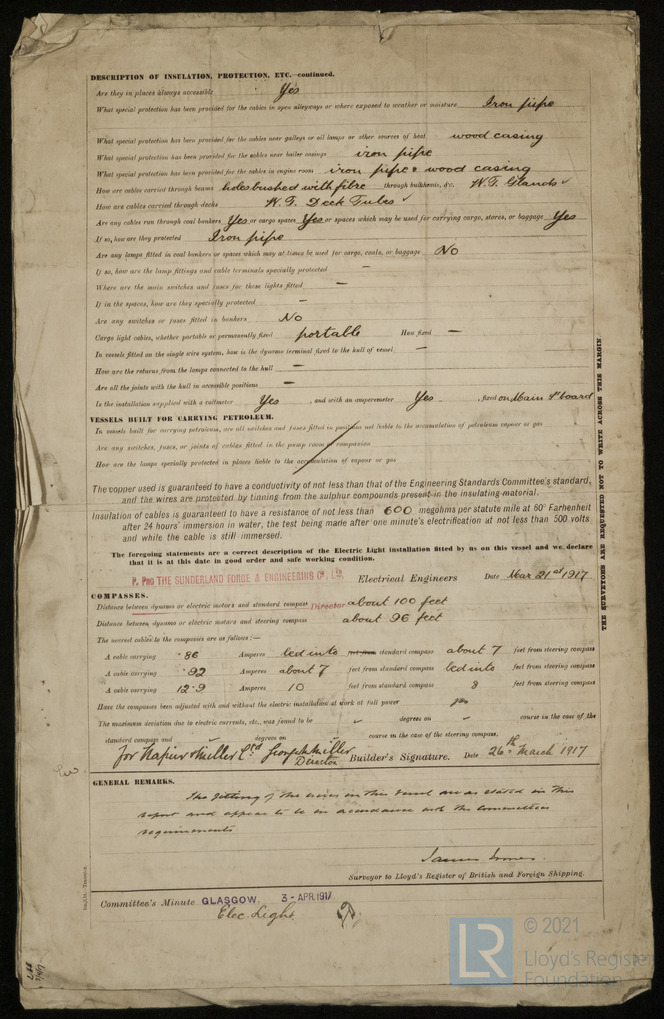 DESCRIPTION OF INSULATION, PROTECTION, ETC.—continued.
Are they in places always accessible Yes
What special protection has been provided for the cables in open alleyways or where exposed to weather or moisture Iron pipe
What special protection has been provided for the cables near galleys or oil lamps or other sources of heat wood casing
What special protection has been provided for the cables near boiler casings iron pipe
What special protection has been provided for the cables in engine room iron pipe & wood casing
How are cables carried through beams holes bushed with fibre through bulkheads, &c. W.T. Glands ✓
How are cables carried through decks W.T. Deck Tubes ✓
Are any cables run through coal bunkers Yes or cargo spaces Yes or spaces which may be used for carrying cargo, stores, or baggage Yes
If so, how are they protected Iron pipe
Are any lamps fitted in coal bunkers or spaces which may at times be used for cargo, coals, or baggage No
If so, how are the lamp fittings and cable terminals specially protected —
Where are the main switches and fuses for these lights fitted —
If in the spaces, how are they specially protected —
Are any switches or fuses fitted in bunkers No
Cargo light cables, whether portable or permanently fixed portable How fixed —
In vessels fitted on the single wire system, how is the dynamo terminal fixed to the hull of vessel —
How are the returns from the lamps connected to the hull —
Are all the joints with the hull in accessible positions —
Is the installation supplied with a voltmeter Yes , and with an amperemeter Yes , fixed on Main S'board
VESSELS BUILT FOR CARRYING PETROLEUM.
In vessels built for carrying petroleum, are all switches and fuses fitted in positions not liable to the accumulation of petroleum vapour or gas
Are any switches, fuses, or joints of cables fitted in the pump room or companion
How are the lamps specially protected in places liable to the accumulation of vapour or gas
The copper used is guaranteed to have a conductivity of not less than that of the Engineering Standards Committee's standard,
and the wires are protected by tinning from the sulphur compounds present in the insulating material.
Insulation of cables is guaranteed to have a resistance of not less than 600 megohms per statute mile at 60° Farhenheit
after 24 hours' immersion in water, the test being made after one minute's electrification at not less than 500 volts
and while the cable is still immersed.
The foregoing statements are a correct description of the Electric Light installation fitted by us on this vessel and we declare
that it is at this date in good order and safe working condition.
P. PRO THE SUNDERLAND FORGE & ENGINEERING CO., LTD. Electrical Engineers Date Mar 21st 1917
Director
COMPASSES.
Distance between dynamo or electric motors and standard compass about 100 feet
Distance between dynamo or electric motors and steering compass about 96 feet
The nearest cables to the compasses are as follows:—
A cable carrying .86 Amperes led into feet from standard compass about 7 feet from steering compass
A cable carrying .92 Amperes about 7 feet from standard compass led into feet from steering compass
A cable carrying 12.9 Amperes 10 feet from standard compass 8 feet from steering compass
Have the compasses been adjusted with and without the electric installation at work at full power yes
The maximum deviation due to electric currents, etc., was found to be ✓ degrees on ✓ course in the case of the
standard compass and ✓ degrees on ✓ course in the case of the steering compass.
for Napier & Miller Ltd George M Miller Director Builder's Signature. Date 26th March 1917
GENERAL REMARKS.
The fitting of the wires in this vessel are as stated in this
report and appear to be in accordance with the Committees
requirements
James Innes
Surveyor to Lloyd's Register of British and Foreign Shipping.
Committee's Minute GLASGOW. 3 - APR. 1917
Elec. Light
THE SURVEYORS ARE REQUESTED NOT TO WRITE ACROSS THIS MARGIN
LR
© 2021
Lloyd's Register
Foundation